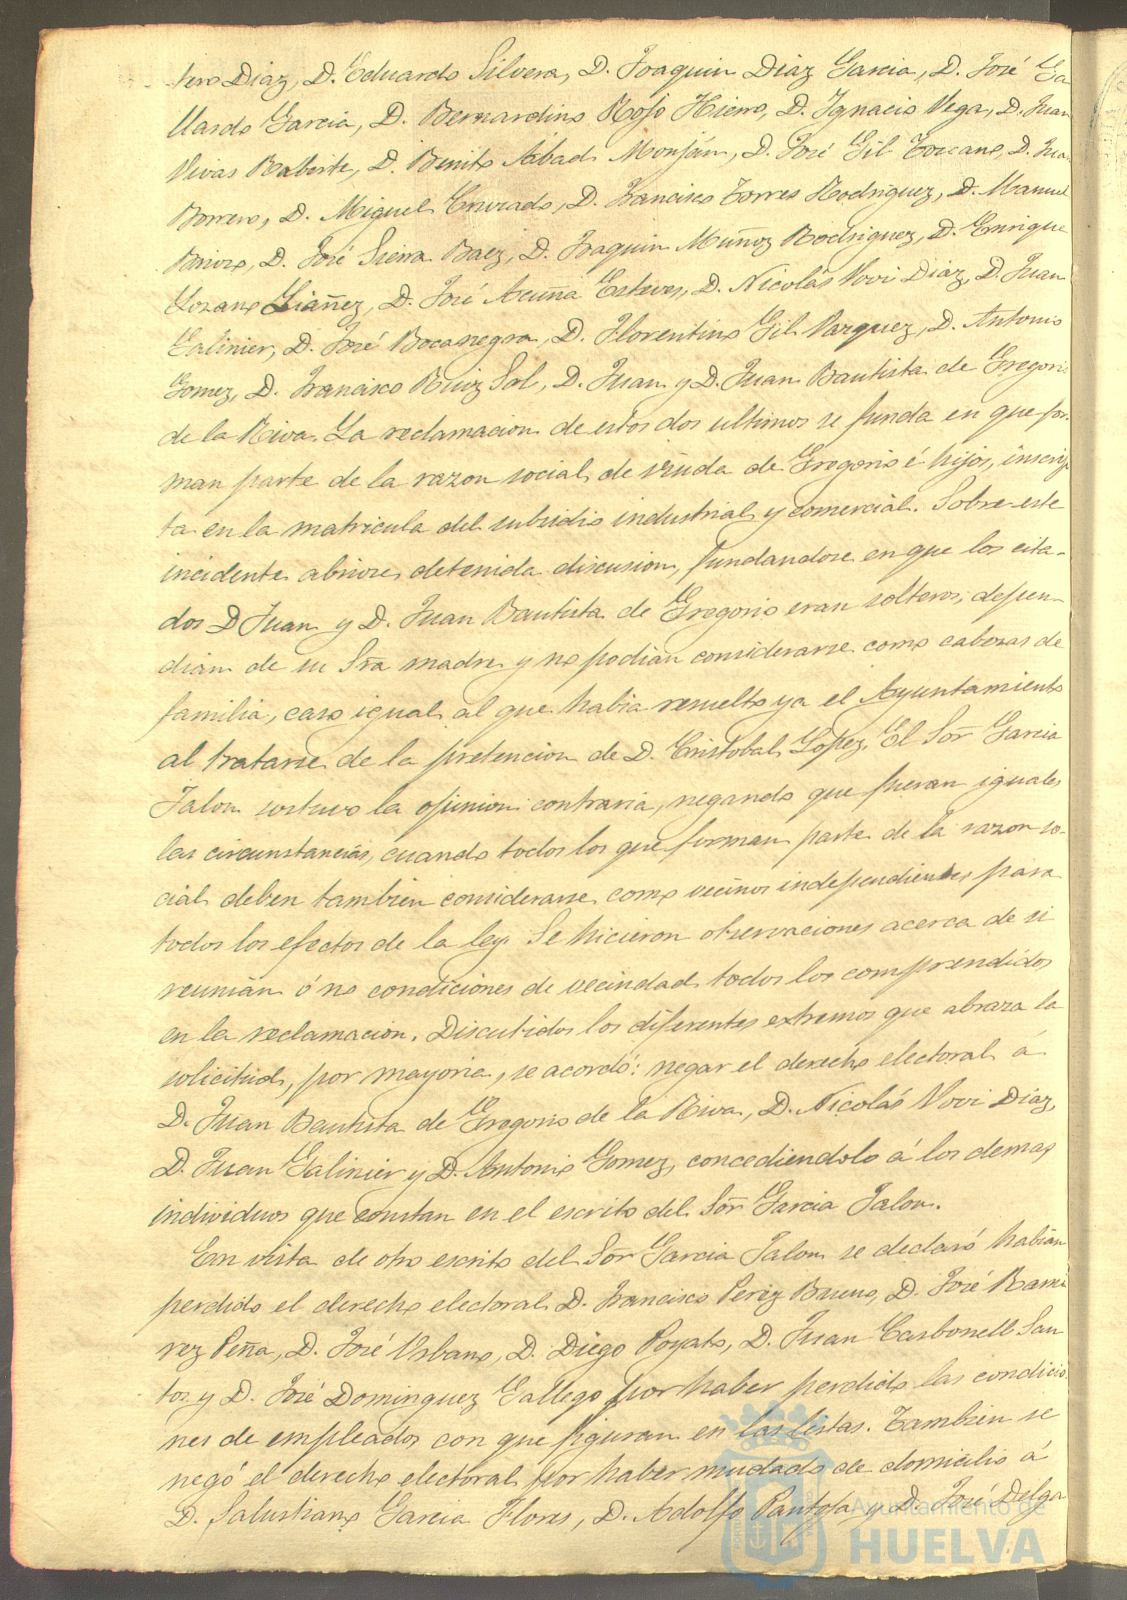 tero Diaz, D. Eduardo Silvera, D. Joaquin Diaz Garcia, D. José Ga
llardo Garcia, D. Bernardino Rojo Hierro, D. Ignacio Vega, D. Juan
Vivas Raberte, D. Benito Abad Monján, D. José Gil Toscano, D. Jua
Borrero, D. Miguel Cruzado, D. Francisco Torres Rodriguez, D. Manuel
D. José Sierra Baez, D. Joaquin Muñoz Rodriguez, D. Enrique
Lozano Liañez, D. José Acuña Esteves, D. Nicolás Vovi Diaz, D. Juan
Galinier, D. José Bocanegra, D. Florentino Gil Vazquez, D. Antonio
Gomez, D. Francisco Ruiz Sol, D. Juan y D. Juan Bautista de Gregorio
de la Riva. La reclamacion de estos dos ultimos se funda en que for-
man parte de la razon social de viuda de Gregorio é hijos, inscrip
ta en la matricula del subsidio industrial y comercial. Sobre este
incidente abriose detenida discusion, fundandose en que los cita-
dos D Juan y D. Juan Bautista de Gregorio eran solteros, depen-
dian de su Sra madre y no podian considerarse como cabezas de
familia, caso igual al que habia resuelto ya el Ayuntamiento
al tratarse de la pretencion de D. Cristobal Lopez. El Sor Garcia
Jalon sostuvo la opinion contraria, negando que fueran iguales
las circunstancias, cuando todos los que forman parte de la razon so-
cial deben tambien considerarse como vecinos independientes para
todos los efectos de la ley. Se hicieron observaciones acerca de si
reunian ó no condiciones de vecindad todos los comprendidos
en la reclamacion. Discutidos los diferentes extremos que abraza la
solicitud, por mayoria, se acordó: negar el derecho electoral á
D. Juan Bautista de Gregorio de la Riva, D. Nicolás Vovi Diaz,
D. Juan Galinier y D. Antonio Gomez, concediendolo á los demas
individuos que constan en el escrito del Sor Garcia Jalon.
En vista de otro escrito del Sor Garcia Jalon se declaró habian
perdido el derecho electoral D. Francisco Perez Bueno, D. José Rami
rez Peña, D. José Urbano, D. Diego Poyato, D. Juan Carbonell San
tos y D. José Dominguez Gallego por haber perdido las condicio
nes de empleados con que figuran en las listas. Tambien se
negó el derecho electoral por haber mudado de domicilio á
D. Salustiano Garcia Flores, D. Adolfo Pantoja y D. José Delga
Ayuntamiento de
HUELVA